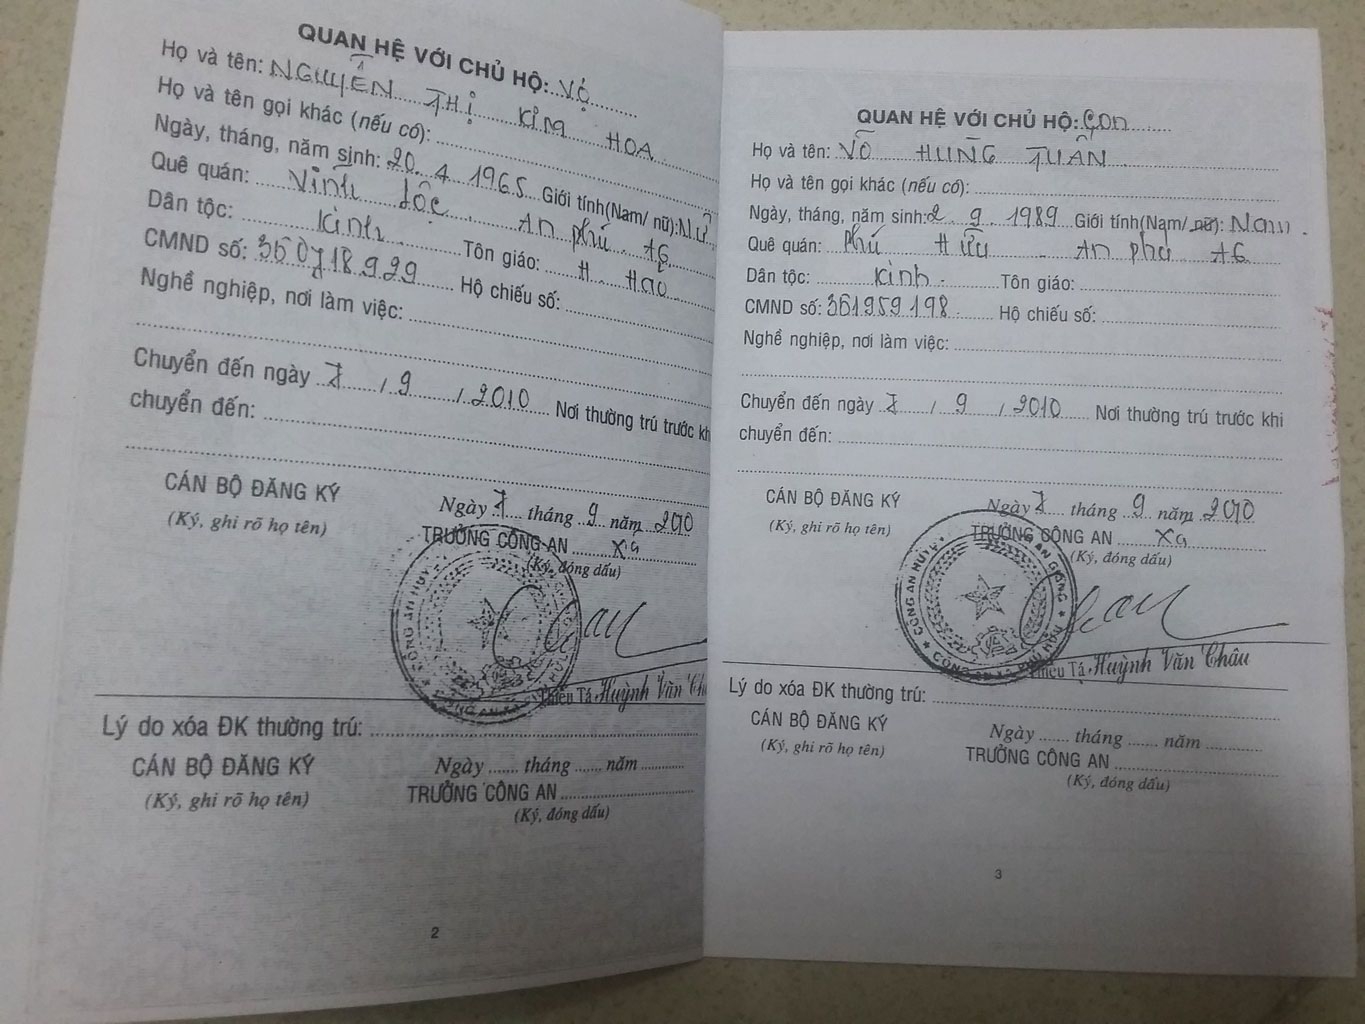 QUAN HỆ VỚI CHỦ HỘ: VỢ
Họ và tên: NGUYỄN THỊ KIM HOA
Họ và tên gọi khác (nếu có):
Ngày, tháng, năm sinh: 20.4.1965 Giới tính(Nam/ nữ): NỮ
Quê quán: Vĩnh Lộc An phú AG
Dân tộc: Kinh Tôn giáo: H. Hảo
CMND số: 350718929 Hộ chiếu số:
Nghề nghiệp, nơi làm việc:
Chuyển đến ngày 7 / 9 / 2010 Nơi thường trú trước kh
chuyển đến:
CÁN BỘ ĐĂNG KÝ
(Ký, ghi rõ họ tên)
Ngày 7 tháng 9 năm 2010
TRƯỞNG CÔNG AN Xã
(Ký, đóng dấu)
CÔNG AN HUYỆN
Thiếu Tá Huỳnh Văn Châ
Lý do xóa ĐK thường trú:
CÁN BỘ ĐĂNG KÝ
(Ký, ghi rõ họ tên)
Ngày ....... tháng ....... năm ...........
TRƯỞNG CÔNG AN
(Ký, đóng dấu)
2
QUAN HỆ VỚI CHỦ HỘ: Con
Họ và tên: VÕ HÙNG TUẤN
Họ và tên gọi khác (nếu có):
Ngày, tháng, năm sinh: 2.9.1989 Giới tính(Nam/ nữ): Nam.
Quê quán: Phú Hữu An phú AG
Dân tộc: Kinh. Tôn giáo:
CMND số: 361959198 Hộ chiếu số:
Nghề nghiệp, nơi làm việc:
Chuyển đến ngày 7 / 9 / 2010 Nơi thường trú trước khi
chuyển đến:
CÁN BỘ ĐĂNG KÝ
(Ký, ghi rõ họ tên)
Ngày 7 tháng 9 năm 2010
TRƯỞNG CÔNG AN Xã
(Ký, đóng dấu)
CÔNG AN HUYỆN AN GIANG
CÔNG AN X. PHÚ HỮU
Thiếu Tá Huỳnh Văn Châu
Lý do xóa ĐK thường trú:
CÁN BỘ ĐĂNG KÝ
(Ký, ghi rõ họ tên)
Ngày ....... tháng ....... năm ...........
TRƯỞNG CÔNG AN
(Ký, đóng dấu)
3